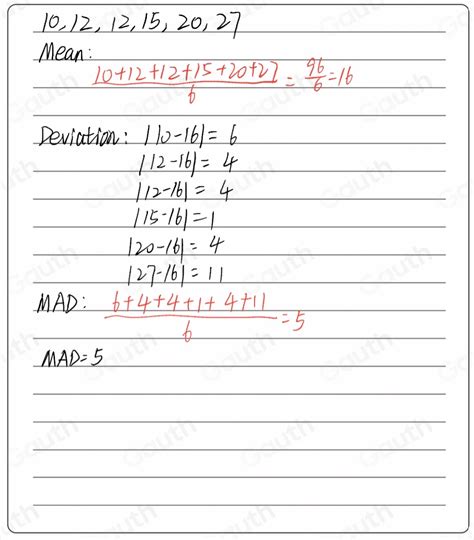 10, 12, 12, 15, 20, 27
Mean:
(10+12+12+15+20+27)/6 = 96/6 = 16
Deviation: |10-16| = 6
|12-16| = 4
|12-16| = 4
|15-16| = 1
|20-16| = 4
|27-16| = 11
MAD: (6+4+4+1+4+11)/6 = 5
MAD = 5
Gauth